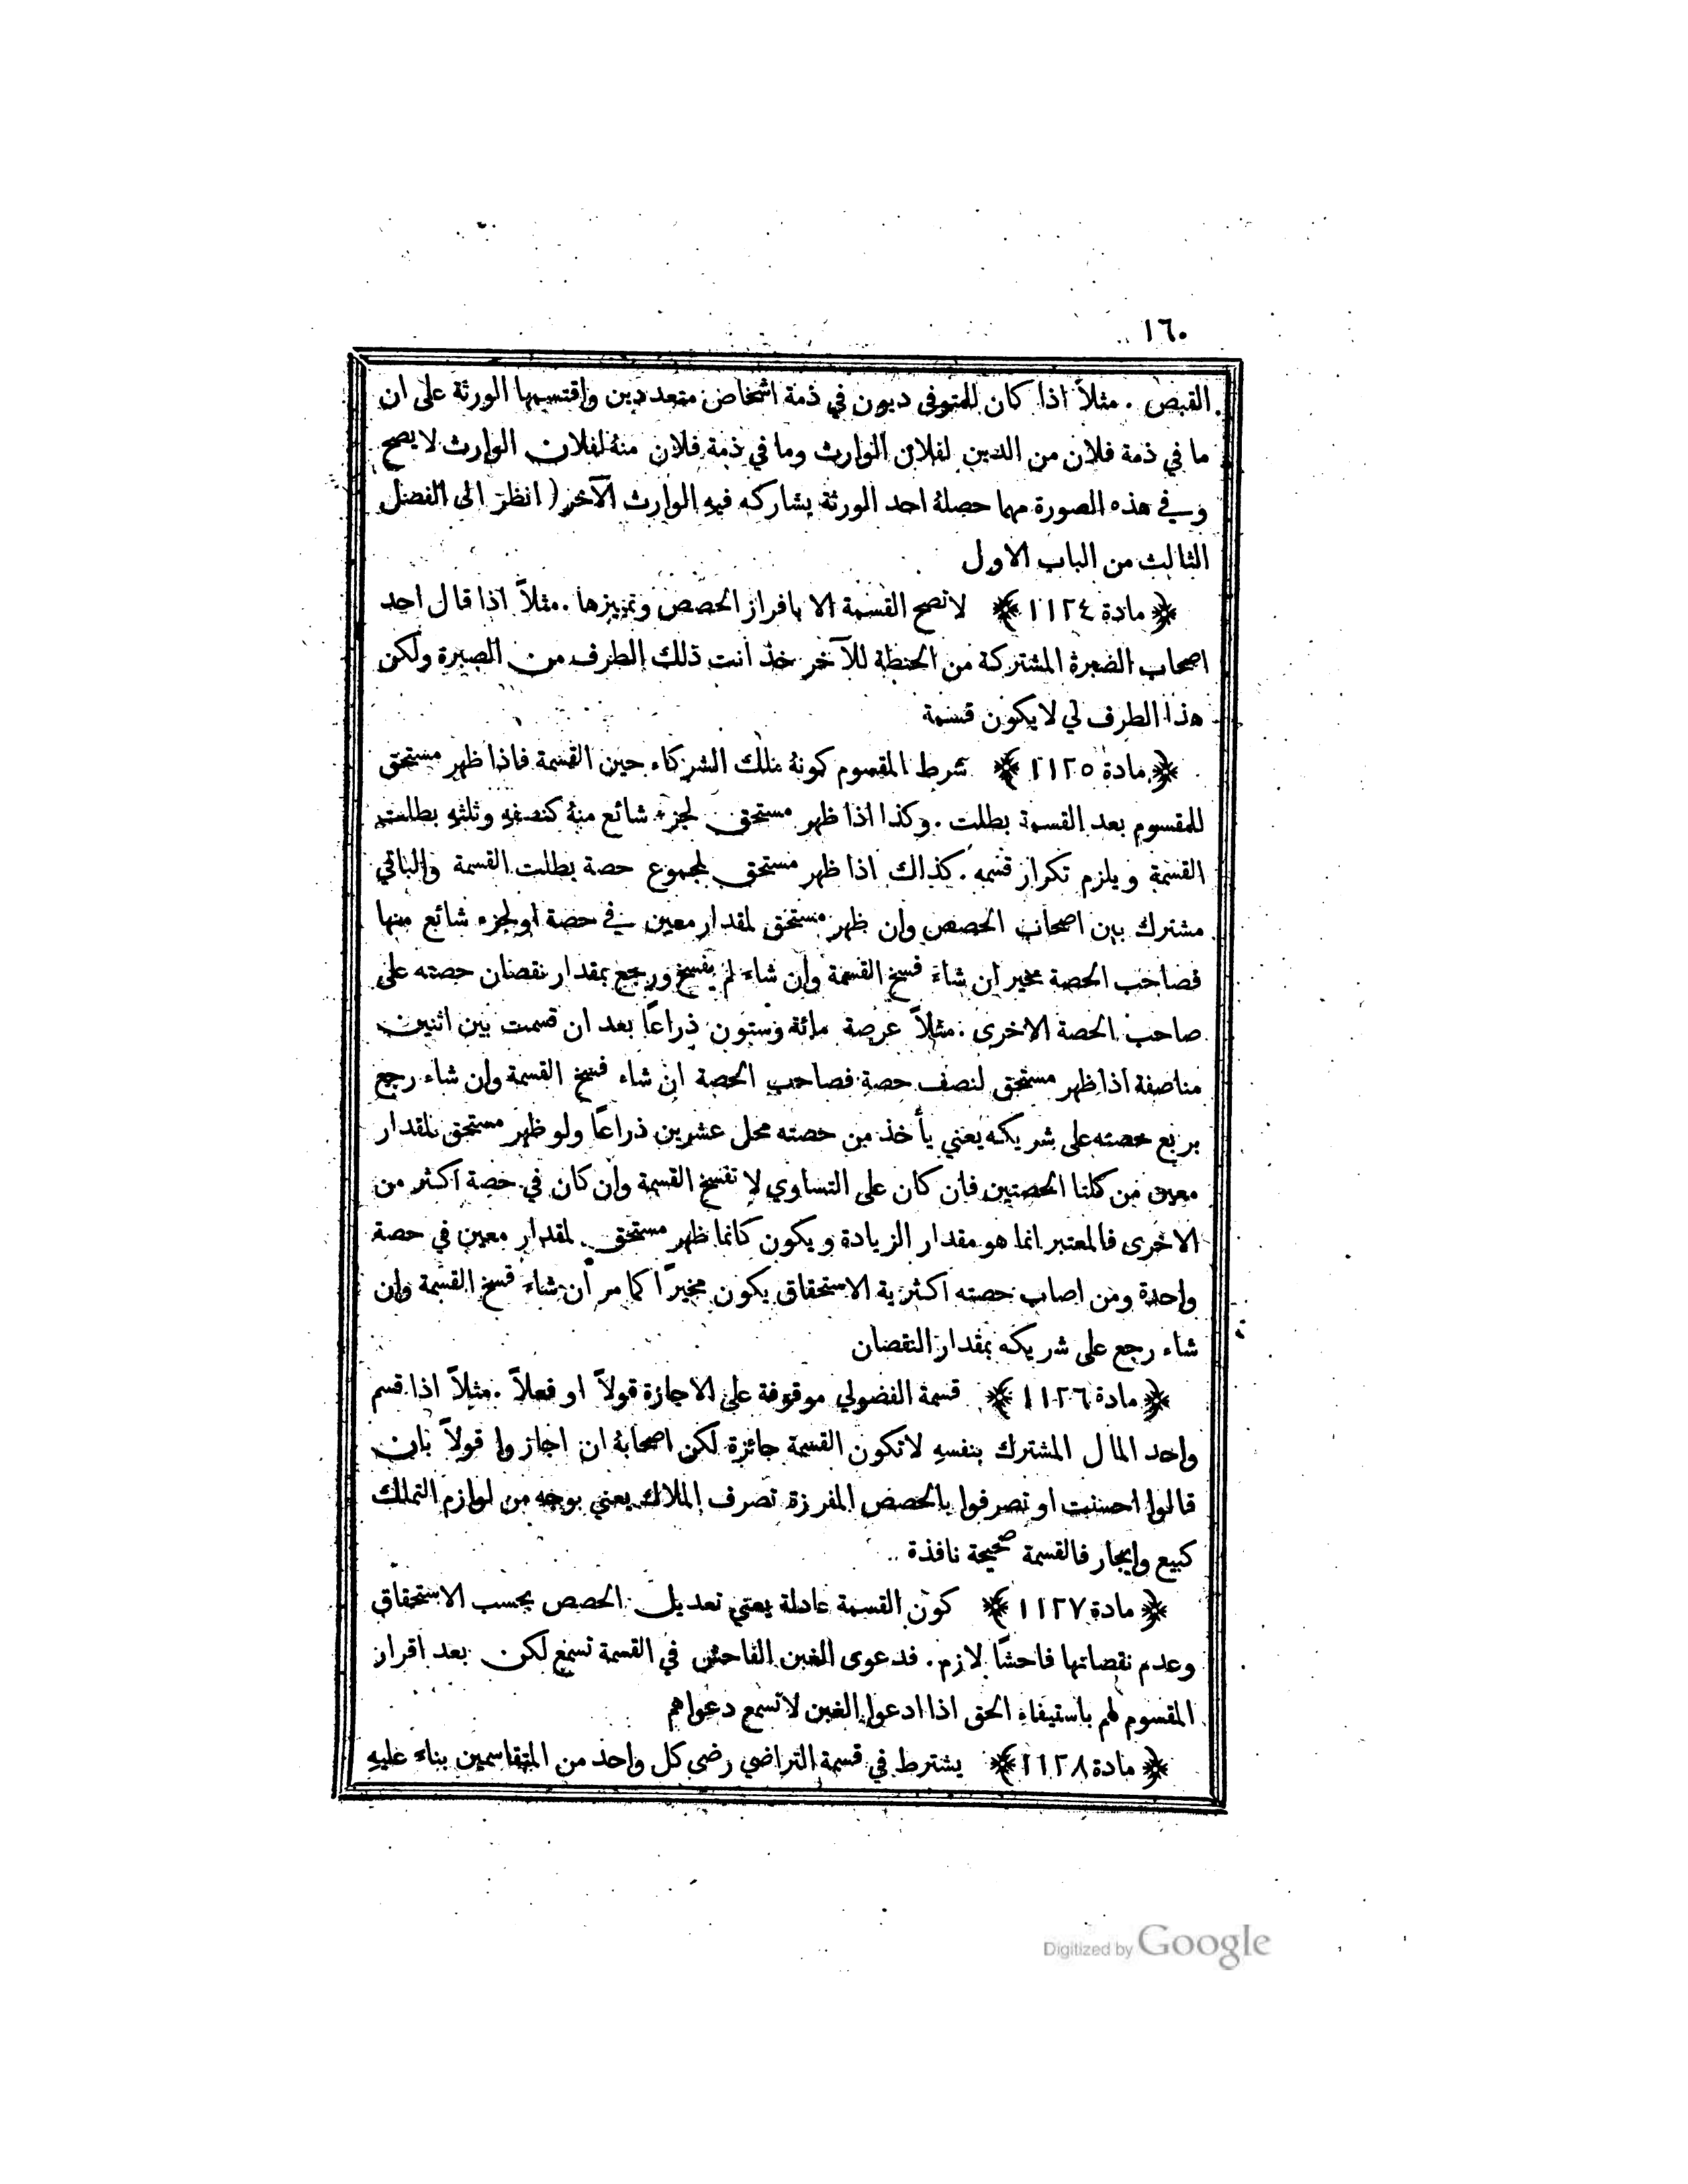 ١٦٠
القبض . مثلاً اذا كان للمتوفى ديون في ذمة اشخاص متعددين واقتسمها الورثة على ان
ما في ذمة فلان من الدين لفلان الوارث وما في ذمة فلان منهُ لفلان الوارث لا يصح
وفي هذه الصورة مهما حصلهُ احد الورثة يشاركه فيهِ الوارث الآخر ( انظر الى الفصل
الثالث من الباب الاول
﴿ مادة ١١٢٤ ﴾ لا تصح القسمة الا بافراز الحصص وتمييزها . مثلاً اذا قال احد
اصحاب الصبرة المشتركة من الحنطة للآخر خذ انت ذلك الطرف من الصبرة ولكن
هذا الطرف لي لا يكون قسمة
﴿ مادة ١١٢٥ ﴾ شرط المقسوم كونهُ ملك الشركاء حين القسمة فاذا ظهر مستحق
للمقسوم بعد القسمة بطلت . وكذا اذا ظهر مستحق لجزء شائع منهُ كنصفهِ وثلثهِ بطلت
القسمة ويلزم تكرار قسمه . كذلك اذا ظهر مستحق لمجموع حصة بطلت القسمة والباقي
مشترك بين اصحاب الحصص وان ظهر مستحق لمقدار معين في حصة او لجزء شائع منها
فصاحب الحصة مخير ان شاء فسخ القسمة وان شاء لم يفسخ ورجع بمقدار نقصان حصته على
صاحب الحصة الاخرى . مثلاً عرصة مائة وستون ذراعًا بعد ان قسمت بين اثنين
مناصفة اذا ظهر مستحق لنصف حصةٍ فصاحب الحصة ان شاء فسخ القسمة وان شاء رجع
بربع حصته على شريكه يعني يأخذ من حصته محل عشرين ذراعًا ولو ظهر مستحق لمقدار
معين من كلتا الحصتين فان كان على التساوي لا تفسخ القسمة وان كان في حصة اكثر من
الاخرى فالمعتبر انما هو مقدار الزيادة ويكون كانما ظهر مستحق لمقدار معين في حصة
واحدة ومن اصاب حصته اكثرية الاستحقاق يكون مخيرًا كما مر ان شاء فسخ القسمة وان
شاء رجع على شريكه بمقدار النقصان
﴿ مادة ١١٢٦ ﴾ قسمة الفضولي موقوفة على الاجازة قولاً او فعلاً . مثلاً اذا قسم
واحد المال المشترك بنفسهِ لا تكون القسمة جائزة لكن اصحابهُ ان اجازوا قولاً بان
قالوا احسنت او تصرفوا بالحصص المفرزة تصرف الملاك يعني بوجه من لوازم التملك
كبيع وايجار فالقسمة صحيحة نافذة
﴿ مادة ١١٢٧ ﴾ كون القسمة عادلة يعني تعديل الحصص بحسب الاستحقاق
وعدم نقصانها فاحشًا لازم . فدعوى الغبن الفاحش في القسمة تسمع لكن بعد اقرار
المقسوم لهم باستيفاء الحق اذا ادعوا الغبن لا تسمع دعواهم
﴿ مادة ١١٢٨ ﴾ يشترط في قسمة التراضي رضى كل واحد من المتقاسمين بناء عليهِ
Digitized by Google